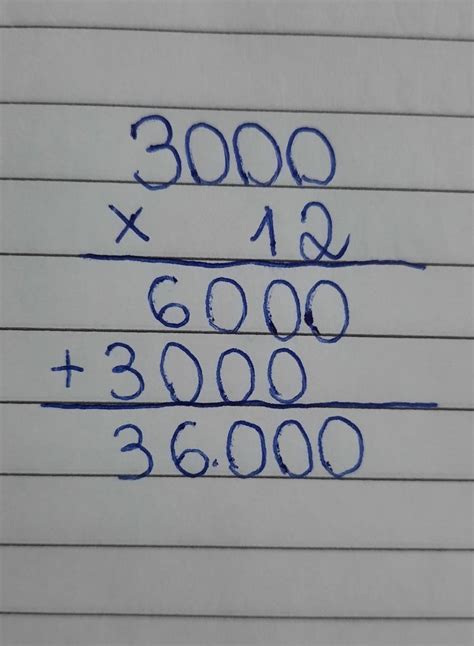 3000
x 12
6000
+3000
36.000